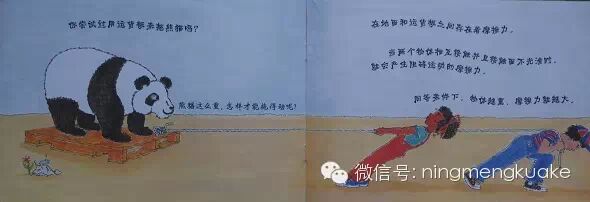 你尝试过用运货板来拖熊猫吗？
熊猫这么重，怎样才能拖得动呢？
在地面和运货板之间存在着摩擦力。
当两个物体相互接触并且接触面不光滑时，
就会产生阻碍运动的摩擦力。
同等条件下，物体越重，摩擦力就越大。
微信号：ningmengkuake